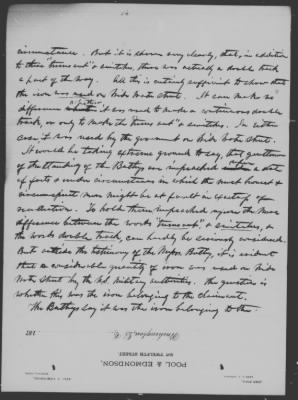 circumstance. But it is shown very clearly, that, in addition
to these "turns out" & switches, there was actually a double track
a part of the way. All this is entirely sufficient to show that
the iron was used on said North Street. It can make no
difference whether it was used to make a continuous double
track, or only to make the "turns out" & switches. In either
case, it was used by the government on said North Street.
It would be taking extreme ground to say, that gentlemen
of the standing of the Bathys are impeached upon a state
of facts & under circumstances in which the most honest &
circumspect men might be at fault in exactness of
recollection. To hold them impeached upon the mere
difference between the words turns out, & switches, &
the words double track, can hardly be seriously considered.
But outside the testimony of the Messrs Bathy, it is evident
that a considerable quantity of iron was used on said
North Street by the U.S. military authorities. The question is
whether this was the iron belonging to the claimant.
The Bathys say it was the iron belonging to the
187
Washington, D. C.
POOL & EDMONDSON,